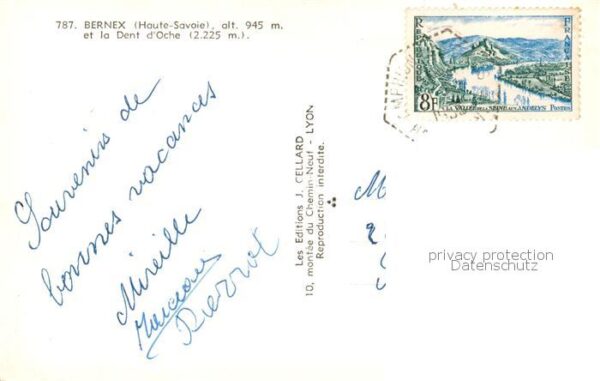 787. BERNEX (Haute-Savoie), alt. 945 m.
et la Dent d'Oche (2.225 m.).
Souvenirs de
bonnes vacances
Mireille
Pierrot
Les Editions J. CELLARD - LYON
10, montée du Chemin-Neuf -
Reproduction interdite.
FRANÇAISE
8F
LA VALLÉE DE LA SEINE AUX ANDELYS POSTES
privacy protection
Datenschutz